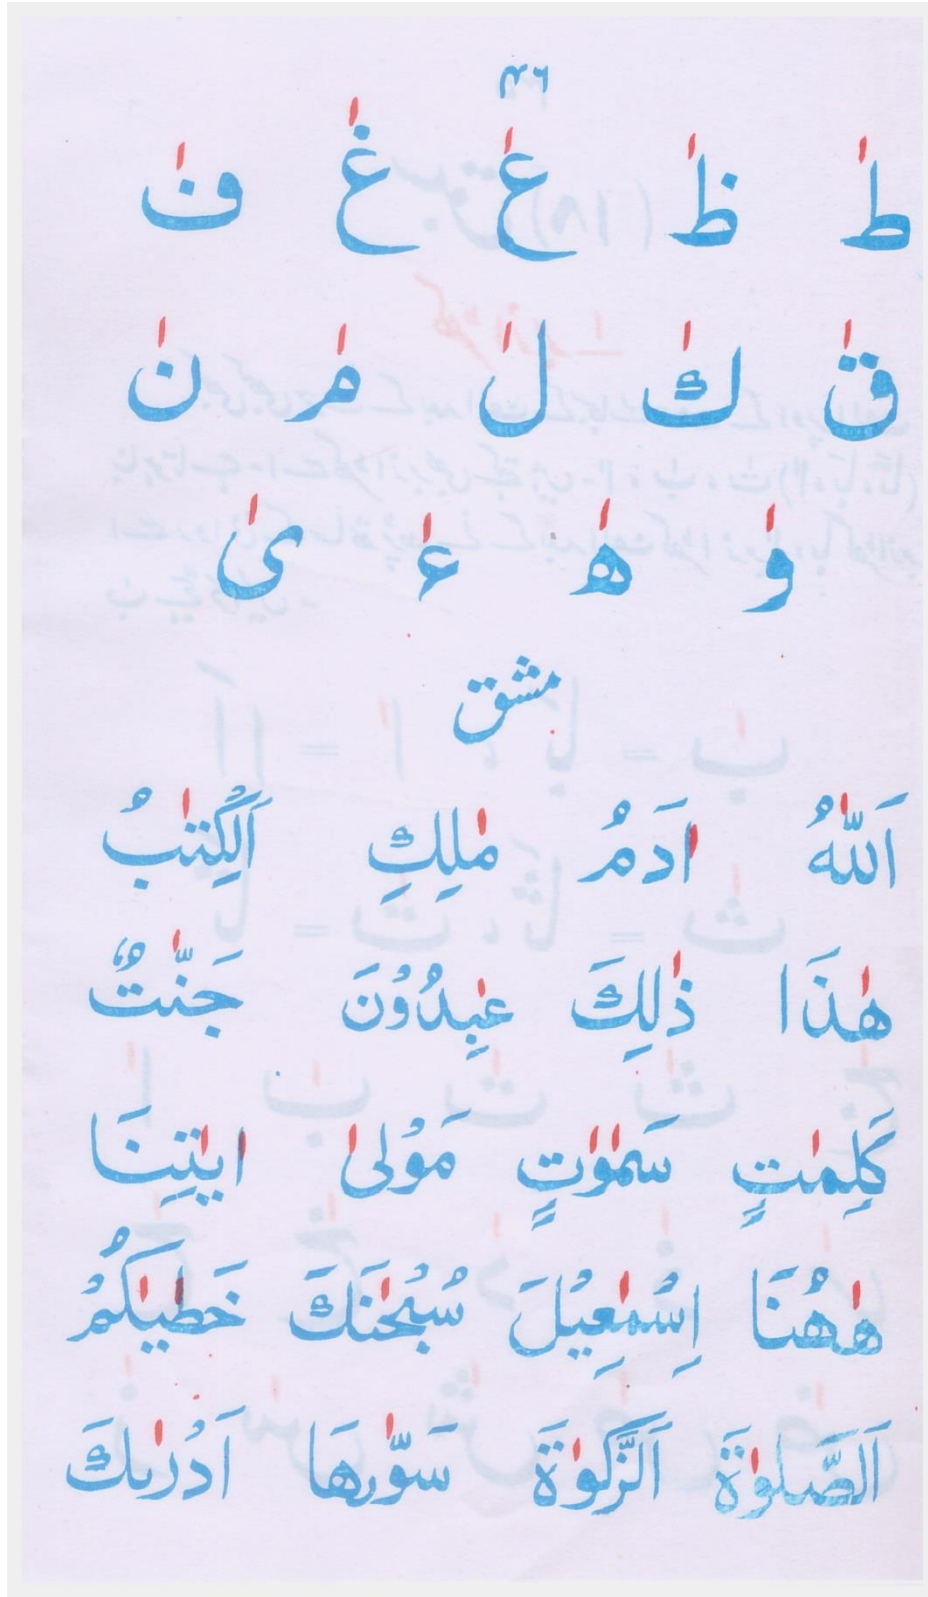 ۴۶
طٰ ظٰ عٰ غٰ فٰ
قٰ كٰ لٰ مٰ نٰ
وٰ هٰ ءٰ یٰ
مشق
اَللّٰهُ اٰدَمُ مٰلِكِ اَلْكِتٰبُ
هٰذَا ذٰلِكَ عٰبِدُوْنَ جَنّٰتٌ
كَلِمٰتٍ سَمٰوٰتٍ مَوْلٰی اٰیٰتِنَا
هٰهُنَا اِسْمٰعِیْلَ سُبْحٰنَكَ خَطٰیٰكُمْ
اَلصَّلٰوةَ اَلزَّكٰوةَ سَوّٰىهَا اَدْرٰىكَ